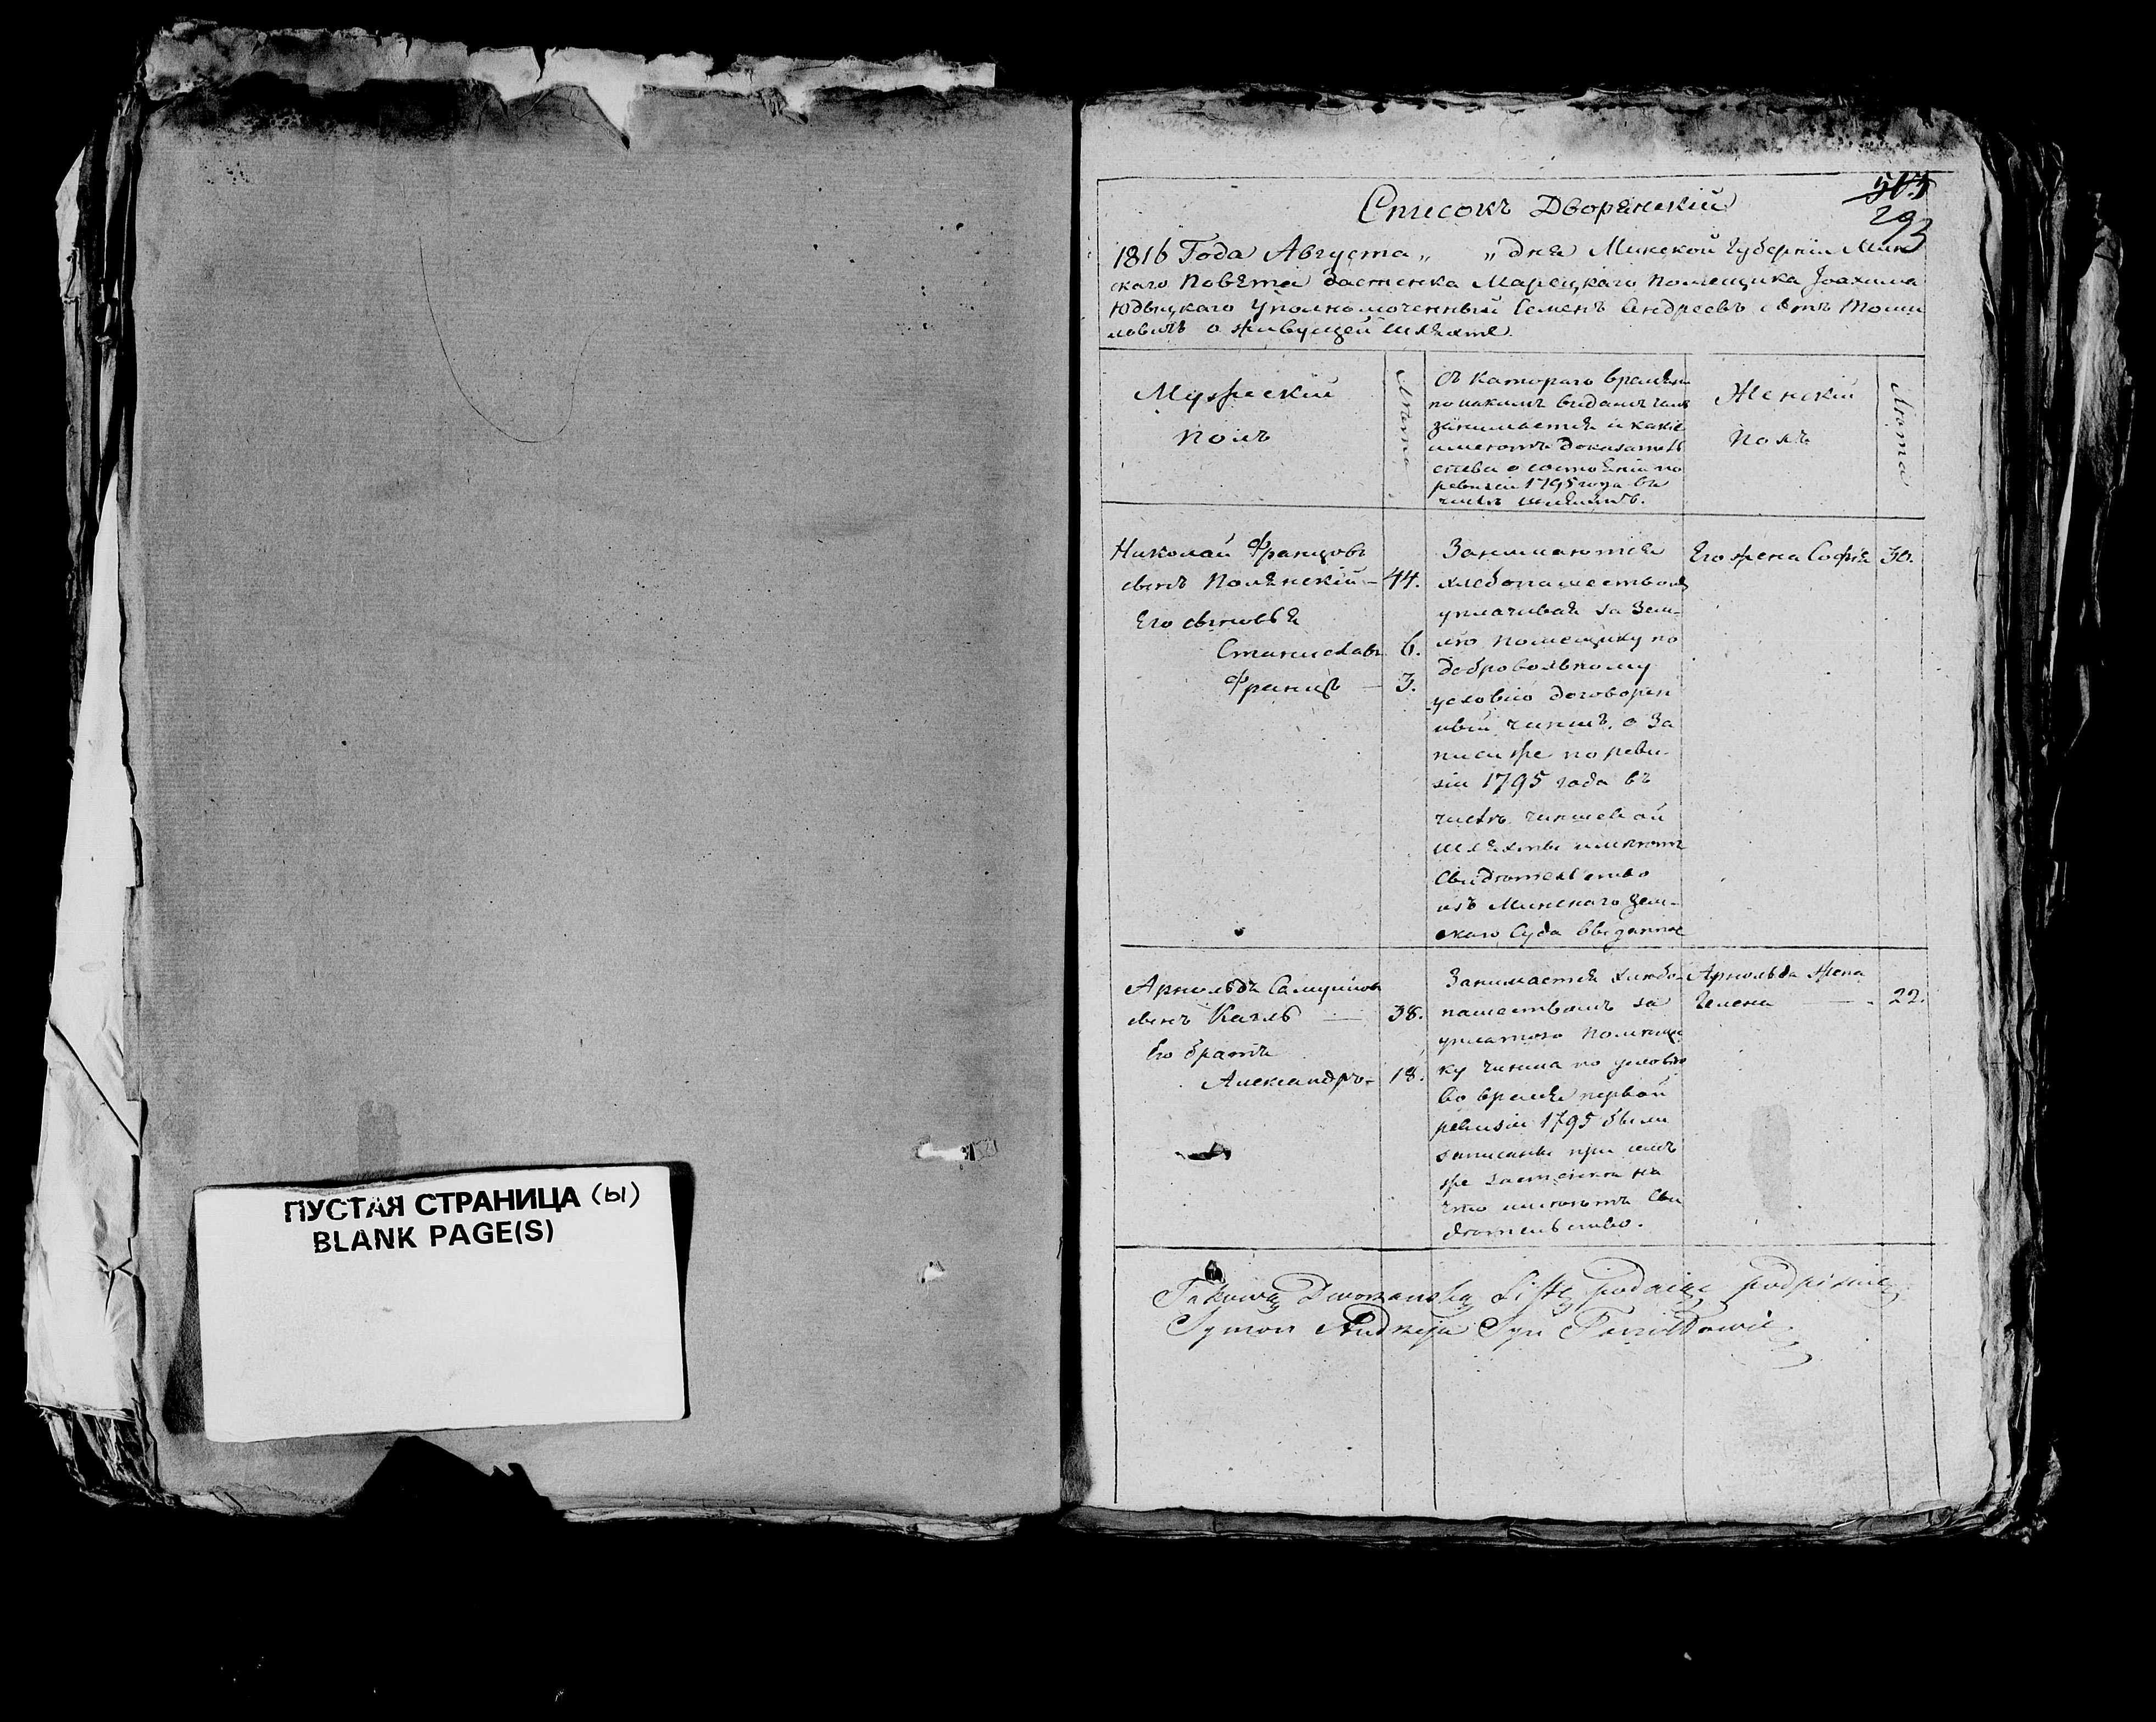 ПУСТАЯ СТРАНИЦА (ы)
BLANK PAGE(S)
293
Списокъ Дворянскій
1816 Года Августа „ „ дня Минской Губерніи Мин
скаго Повѣта Застенка Марецкаго Помещика Іоахима
Юдыцкаго Уполномоченный Семенъ Андреевъ сынъ Томи
ловичъ о живущей шляхте.
Мужеский
полъ
Лѣта
съ катораго времени
по какимъ видамъ чемъ
занимается и какіе
имеютъ доказатель
ства о состояніи по
ревизіи 1795 года въ
числѣ шляхты.
Женскій
Полъ
Лѣта
Николай Францовъ
сынъ Полянскій - 44.
Его сыновья
Станиславъ 6.
Францъ - 3.
Занимаются
хлебопашествомъ
уплачивая за Зем-
лю помещику по
добровольному
условію договорен
ный чиншъ, о За
писи же по реви-
зіи 1795 года въ
числѣ чиншевой
шляхты имеютъ
Свидѣтельство
изъ Минскаго Зем-
скаго Суда выданное
Его жена Софія 30.
Арнольдъ Самуилов
сынъ — 38.
Его братъ
Александръ - 18.
Занимается хлебо-
пашествомъ за
уплатою Помещи
ку чинша по условію
во время первой
ревизіи 1795 были
записаны при семъ
же застенке на
что имеютъ Сви
дѣтельство.
Арнольда жена
Гелена — 22.
Takową Dworzanską Listę podaiąc podpisuię
Symon Andrzeja Syn